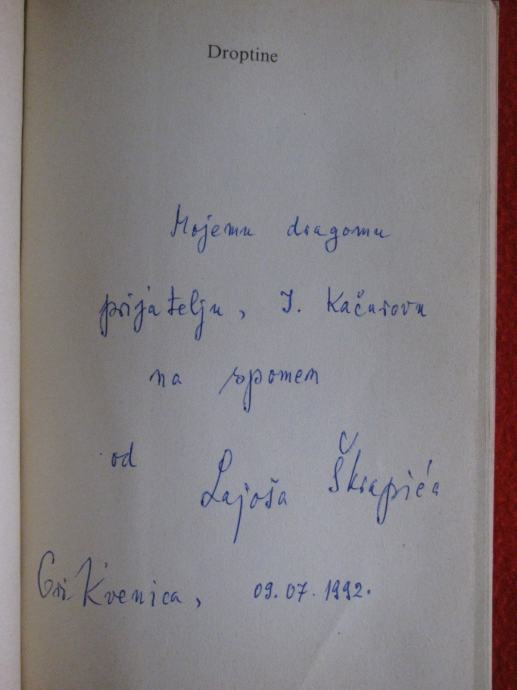 Droptine
Mojemu dragomu
prijatelju, I. Kačurovu
na spomen
od Lajoša Škrapića
Cri-Kvenica, 09.07.1992.